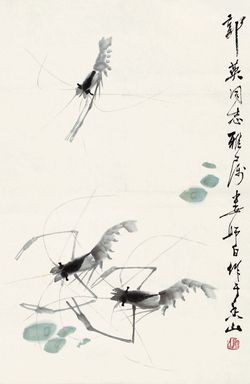 郭英同志雅属娄师白作于香山